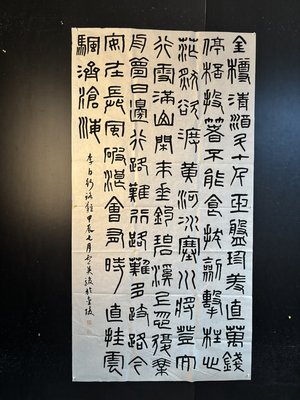 金樽清酒斗十千玉盤珍羞直萬錢
停桮投箸不能食拔劍擊柱心
茫然欲渡黃河冰塞川將登太
行雪滿山閑來垂釣碧溪上忽復乘
舟夢日邊行路難行路難多歧路今
安在長風破浪會有時直挂雲
帆濟滄海
李白行路難甲辰七月